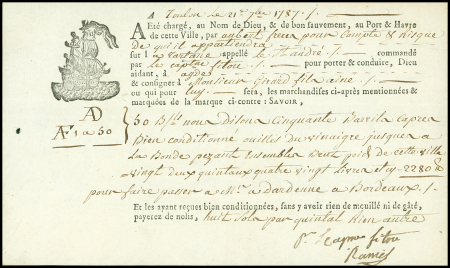 A Toulon le 21e 9bre 1787 /.
A Eté chargé, au Nom de Dieu, & de bon sauvement, au Port & Havre
de cette Ville, par aubert freres pour Compte & Risque
de qui il appartiendra
sur l a tartane appellé le St andré /. commandé
par le captne fitou /. pour porter & conduire, Dieu
aidant, à agde
& consigner à Monsieur Girard fils ainé /.
ou qui pour luy /. sera, les marchandises ci-après mentionnées &
marquées de la marque ci-contre : SAVOIR,
AD
A N° 1 a 50
50 Blls nous Disons Cinquante Barrils Capres
Bien conditionné ouillés du vinaigre jusques a
La Bonde pezant Ensembles Brut poids de cette ville
vingt deux quintaux quatre vingt Livres cy 2280 lb
pour faire passer a Mr. a Dardenne a Bordeaux /.
Et les ayant reçues bien conditionnées, sans y avoir rien de mouillé ni de gâté,
payerez de nolis, huit Sols par quintal Rien autre
pr. Le capne fitou